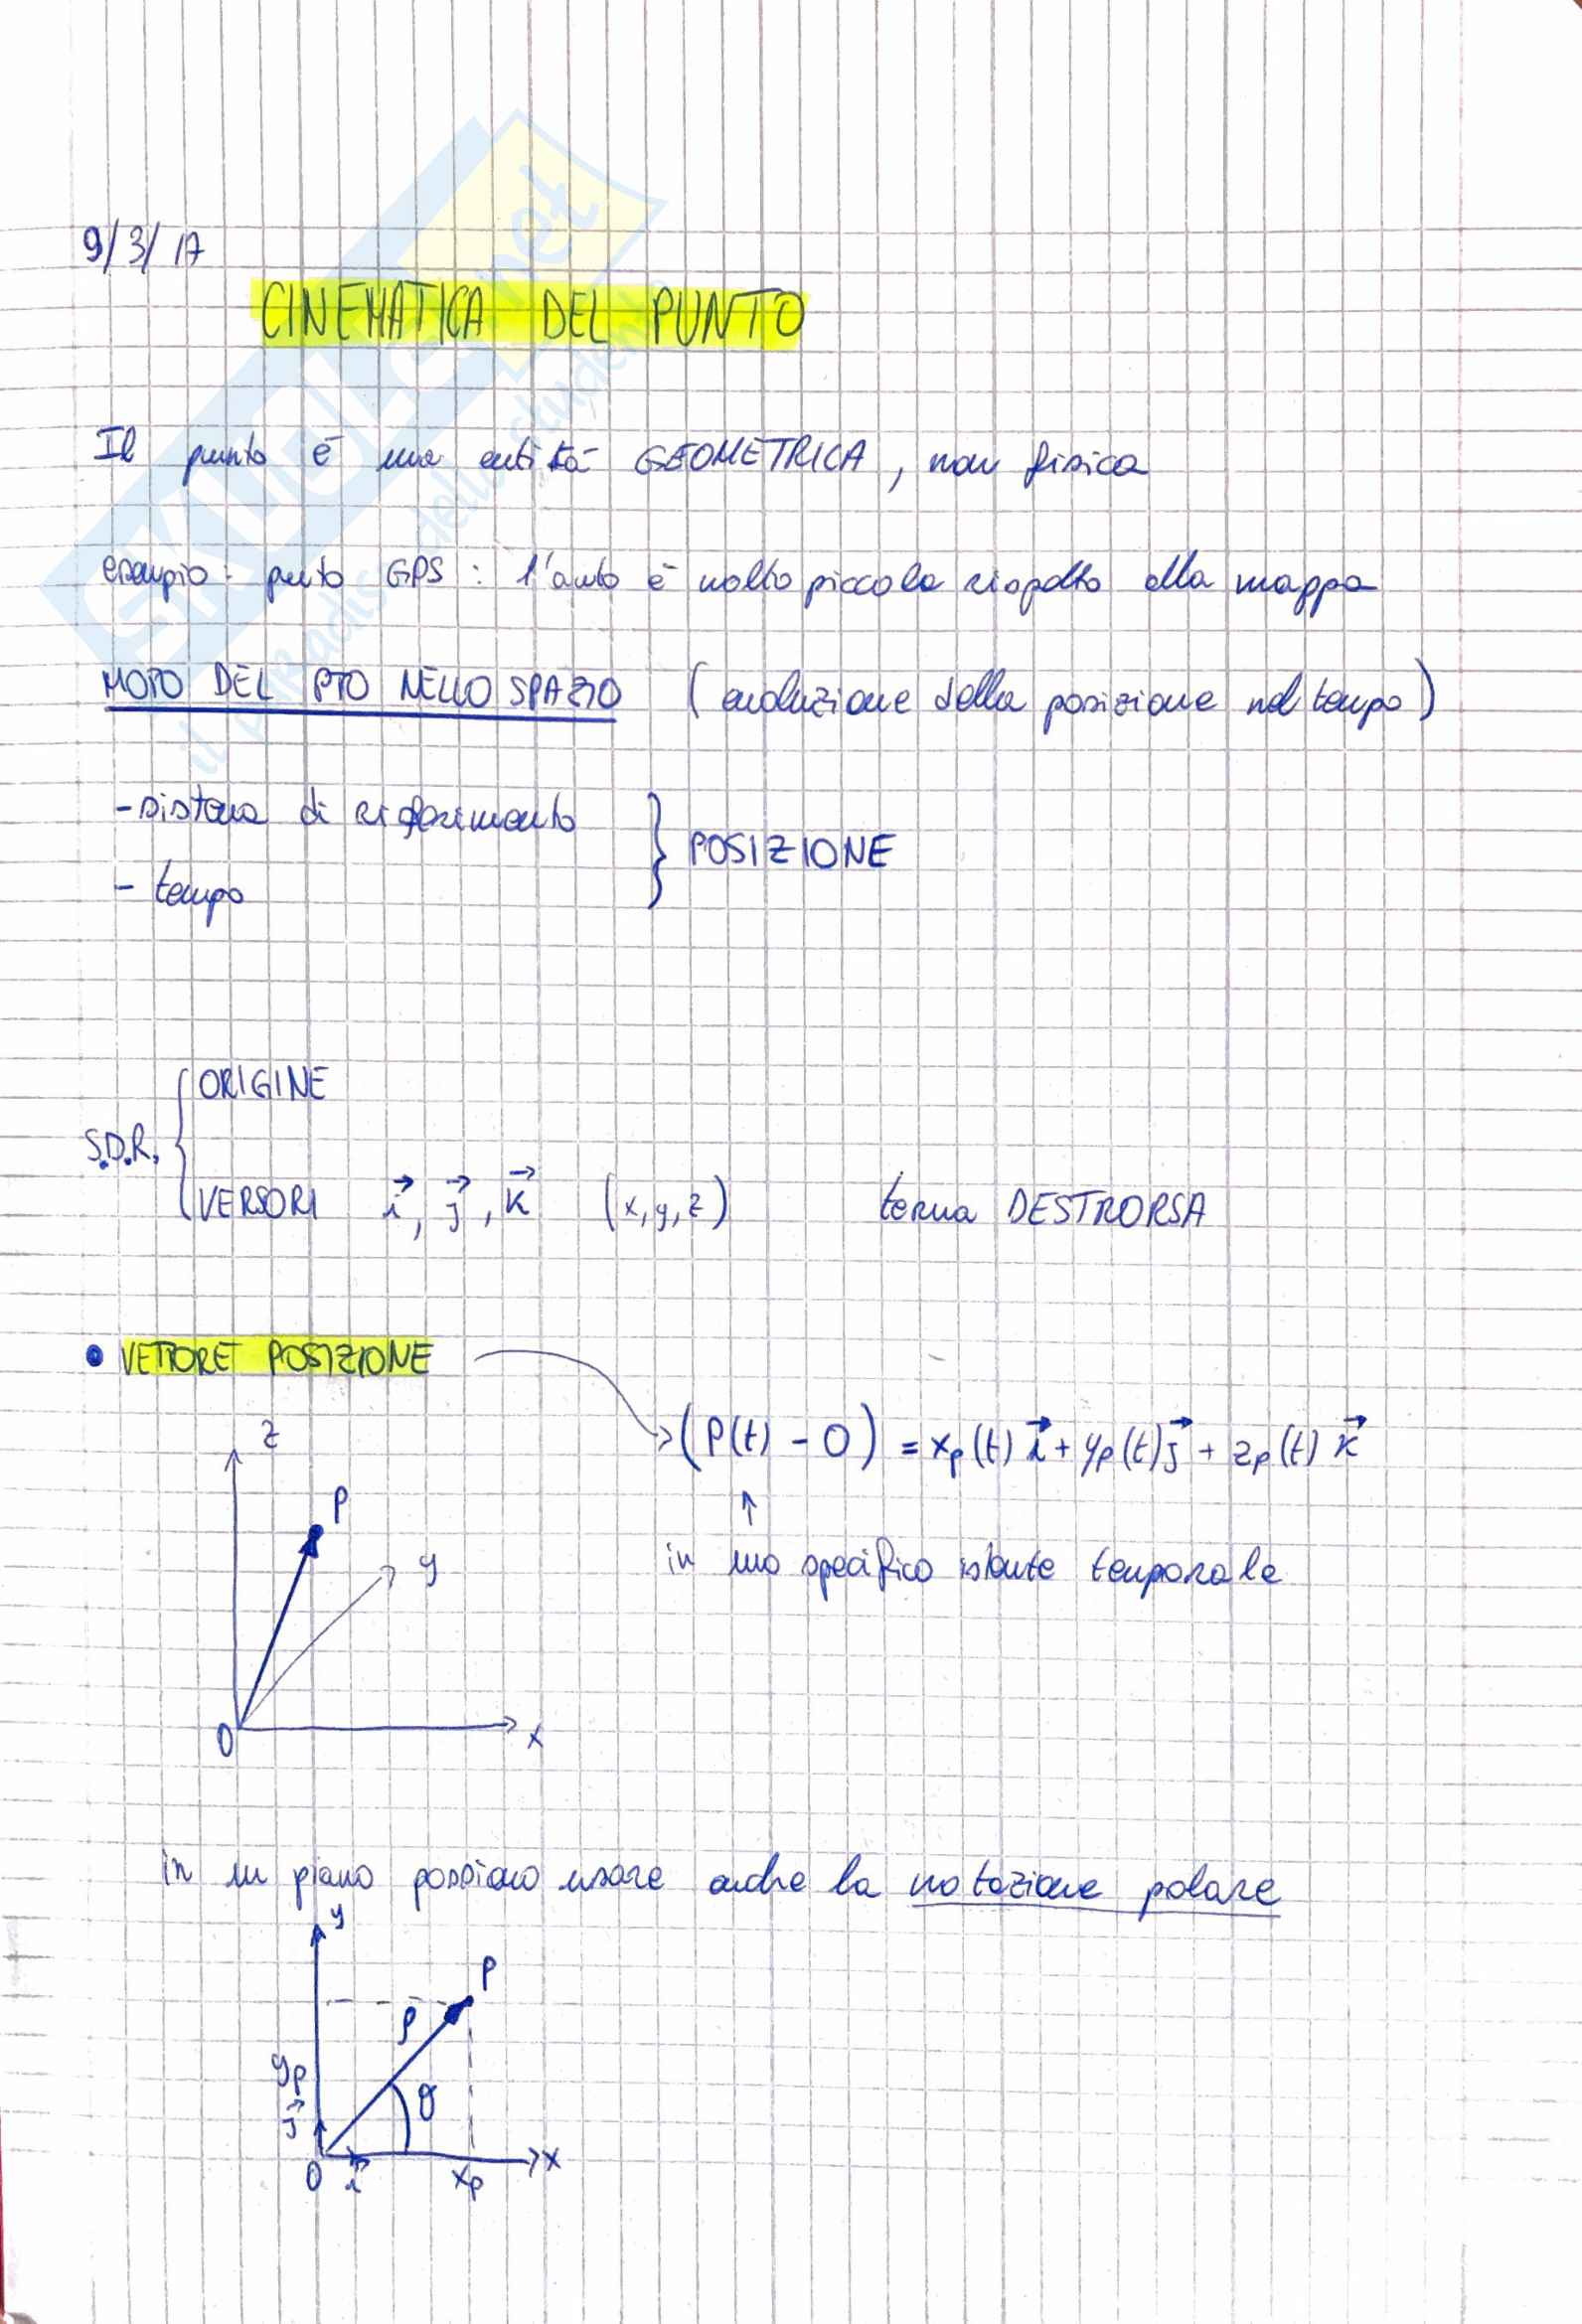 9/3/17
CINEMATICA DEL PUNTO
Il punto è una entità GEOMETRICA, non fisica
esempio: punto GPS: l'auto è molto piccola rispetto alla mappa
MOTO DEL PTO NELLO SPAZIO (evoluzione della posizione nel tempo)
- sistema di riferimento
} POSIZIONE
- tempo
ORIGINE
S.D.R. {
VERSORI i⃗, j⃗, k⃗ (x,y,z) terna DESTRORSA
• VETTORE POSIZIONE
(P(t) - O) = xₚ(t) i⃗ + yₚ(t) j⃗ + zₚ(t) k⃗
↑
in uno specifico istante temporale
z
P
y
O
x
in un piano possiamo usare anche la notazione polare
y
P
ρ
yₚ
θ
j⃗
O i⃗ xₚ x
SKUOLA.net
il paradiso dello studente